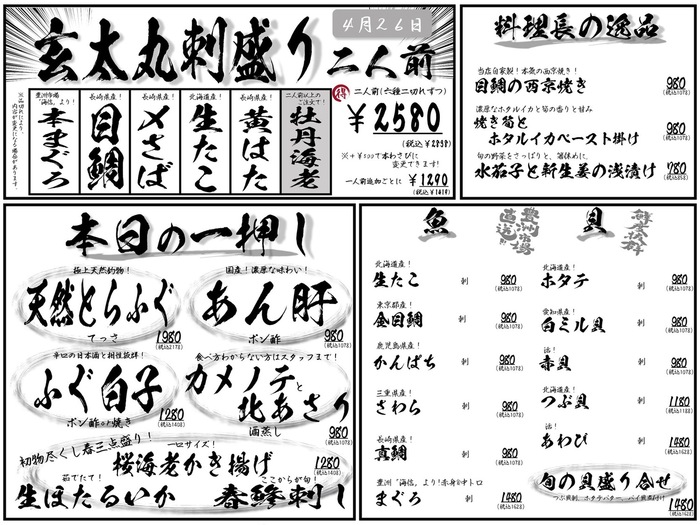 4月26日
玄太丸刺盛り二人前
豊洲市場「海信」より!
本まぐろ
長崎県産!
目鯛
長崎県産!
〆さば
北海道産!
生たこ
長崎県産!
黄はた
二人前以上のご注文で!
牡丹海老
得 二人前(六種二切れずつ)
¥2580
(税込¥2838)
※+¥500で本わさびに
変更できます!
一人前追加ごとに ¥1290
(税込¥1419)
料理長の逸品
当店自家製!本気の西京焼き!
目鯛の西京焼き 980
(税込1078)
濃厚なホタルイカと筍の香りと甘み
焼き筍と
ホタルイカペースト掛け 980
(税込1078)
旬の野菜をさっぱりと、箸休めに。
水茄子と新生姜の浅漬け 780
(税込858)
本日の一押し
極上天然釣物!
天然とらふぐ
てっさ 1980
(税込2178)
国産!濃厚な味わい!
あん肝
ポン酢 980
(税込1078)
辛口の日本酒と相性抜群!
ふぐ白子
ポン酢or焼き 1280
(税込1408)
食べ方わからない方はスタッフまで!
カメノテと
北あさり
酒蒸し 980
(税込1078)
初物尽くし春三点盛り!
一口サイズ!
桜海老かき揚げ 1280
(税込1408)
茹でたて!
生ほたるいか
ここからが旬!
春鰺刺し
魚
豊洲市場
直送!!
北海道産!
生たこ 刺 980
(税込1078)
東京都産!
金目鯛 刺 980
(税込1078)
鹿児島県産!
かんぱち 刺 980
(税込1078)
三重県産!
さわら 刺 980
(税込1078)
長崎県産!
真鯛 刺 980
(税込1078)
豊洲「海信」より!赤身or中トロ
まぐろ 刺 1480
(税込1628)
貝
鮮度抜群
北海道産!
ホタテ 刺 980
(税込1078)
愛知県産!
白ミル貝 刺 980
(税込1078)
活!
赤貝 刺 980
(税込1078)
北海道産!
つぶ貝 刺 1180
(税込1298)
活!
あわび 刺 1480
(税込1628)
旬の貝盛り合せ
つぶ貝刺、ホタテバター、バイ貝煮付け 1480
(税込1628)